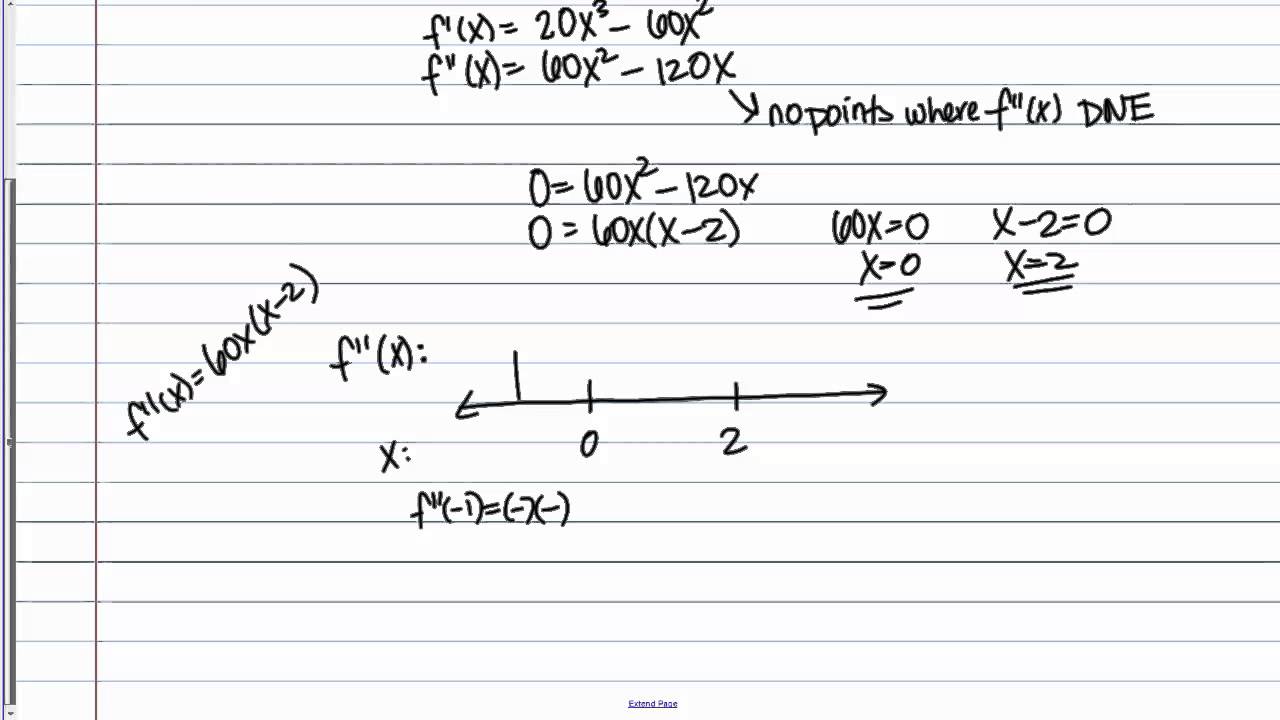 f'(x) = 20x³ - 60x²
f''(x) = 60x² - 120x
no points where f''(x) DNE
0 = 60x² - 120x
0 = 60x(x-2) 60x=0 x-2=0
x=0 x=2
f''(x) = 60x(x-2)
f''(x):
x: 0 2
f''(-1) = (-)(-)
Extend Page